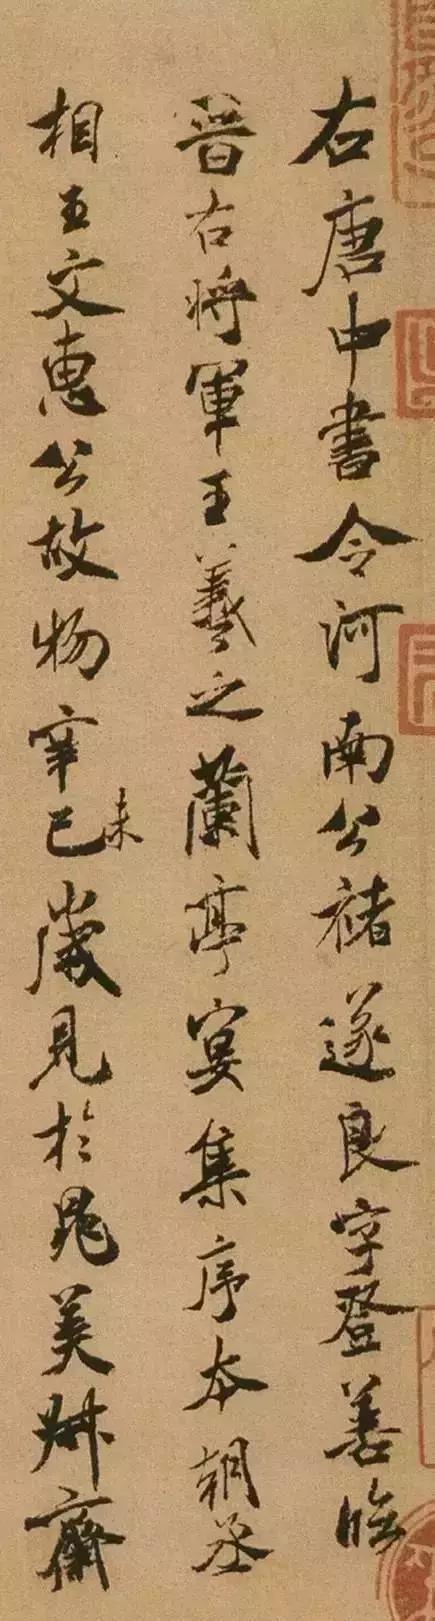 右唐中書令河南公褚遂良字登善臨
晉右將軍王羲之蘭亭宴集序本朝丞
相王文惠公故物辛巳未歲見於晁美叔齋